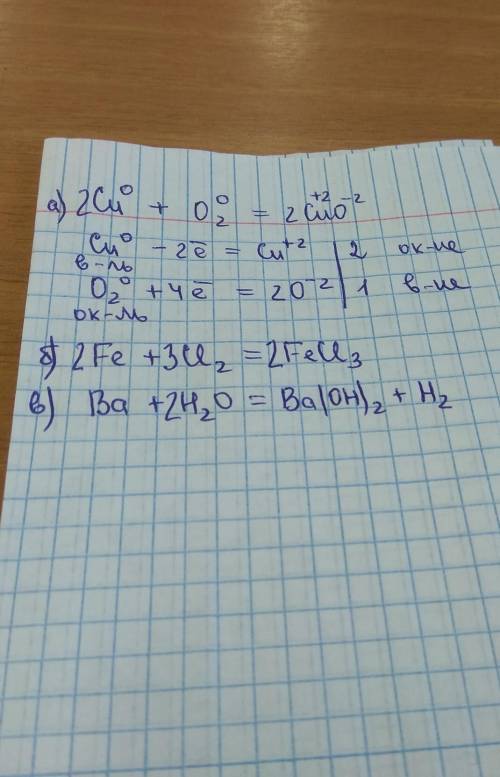 а) 2Cu⁰ + O₂⁰ = 2Cu⁺²O⁻²
Cu⁰ - 2ē = Cu⁺² | 2 ок-ие
в-ль
O₂⁰ + 4ē = 2O⁻² | 1 в-ие
ок-ль
б) 2Fe + 3Cl₂ = 2FeCl₃
в) Ba + 2H₂O = Ba(OH)₂ + H₂